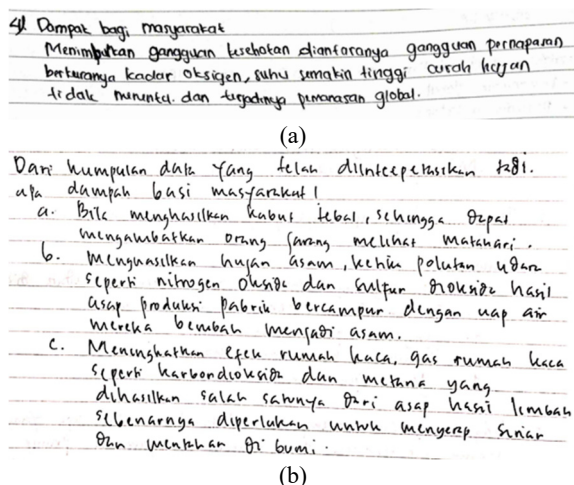 4). Dampak bagi masyarakat
Menimbulkan gangguan kesehatan diantaranya gangguan pernapasan
berkuranya kadar oksigen, suhu semakin tinggi curah hujan
tidak menentu. dan terjadinya pemanasan global.
(a)
Dari kumpulan data yang telah diintecepetasikan tadi.
apa dampah basi masyarakat!
a. Bila menghasilkan kabut tebal, sehingga dapat
mengambatkan orang jarang melihat matahari.
b. Menghasilkan hujan asam, ketika polutan udara
seperti nitrogen oksida dan sulfur dioksida hasil
asap produksi pabrik bercampur dengan uap air
mereka berubah menjadi asam.
c. Meningkatkan efek rumah kaca, gas rumah kaca
seperti karbondioksida dan metana yang
dihasilkan salah satunya dari asap hasil limbah
sebenarnya diperlukan untuk menyerap sinar
dan menahan di bumi.
(b)